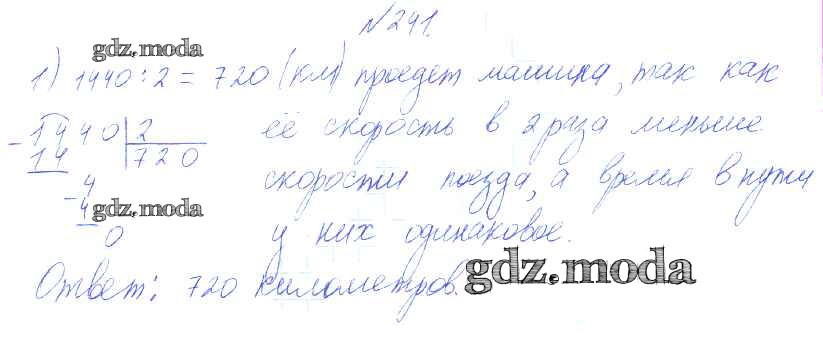 №241.
gdz.moda
1) 1440:2=720 (км) проедет машина, так как
1440 2 её скорость в 2 раза меньше
14 720
4 скорости поезда, а время в пути
4 gdz.moda
0 у них одинаковое.
gdz.moda
Ответ: 720 километров.